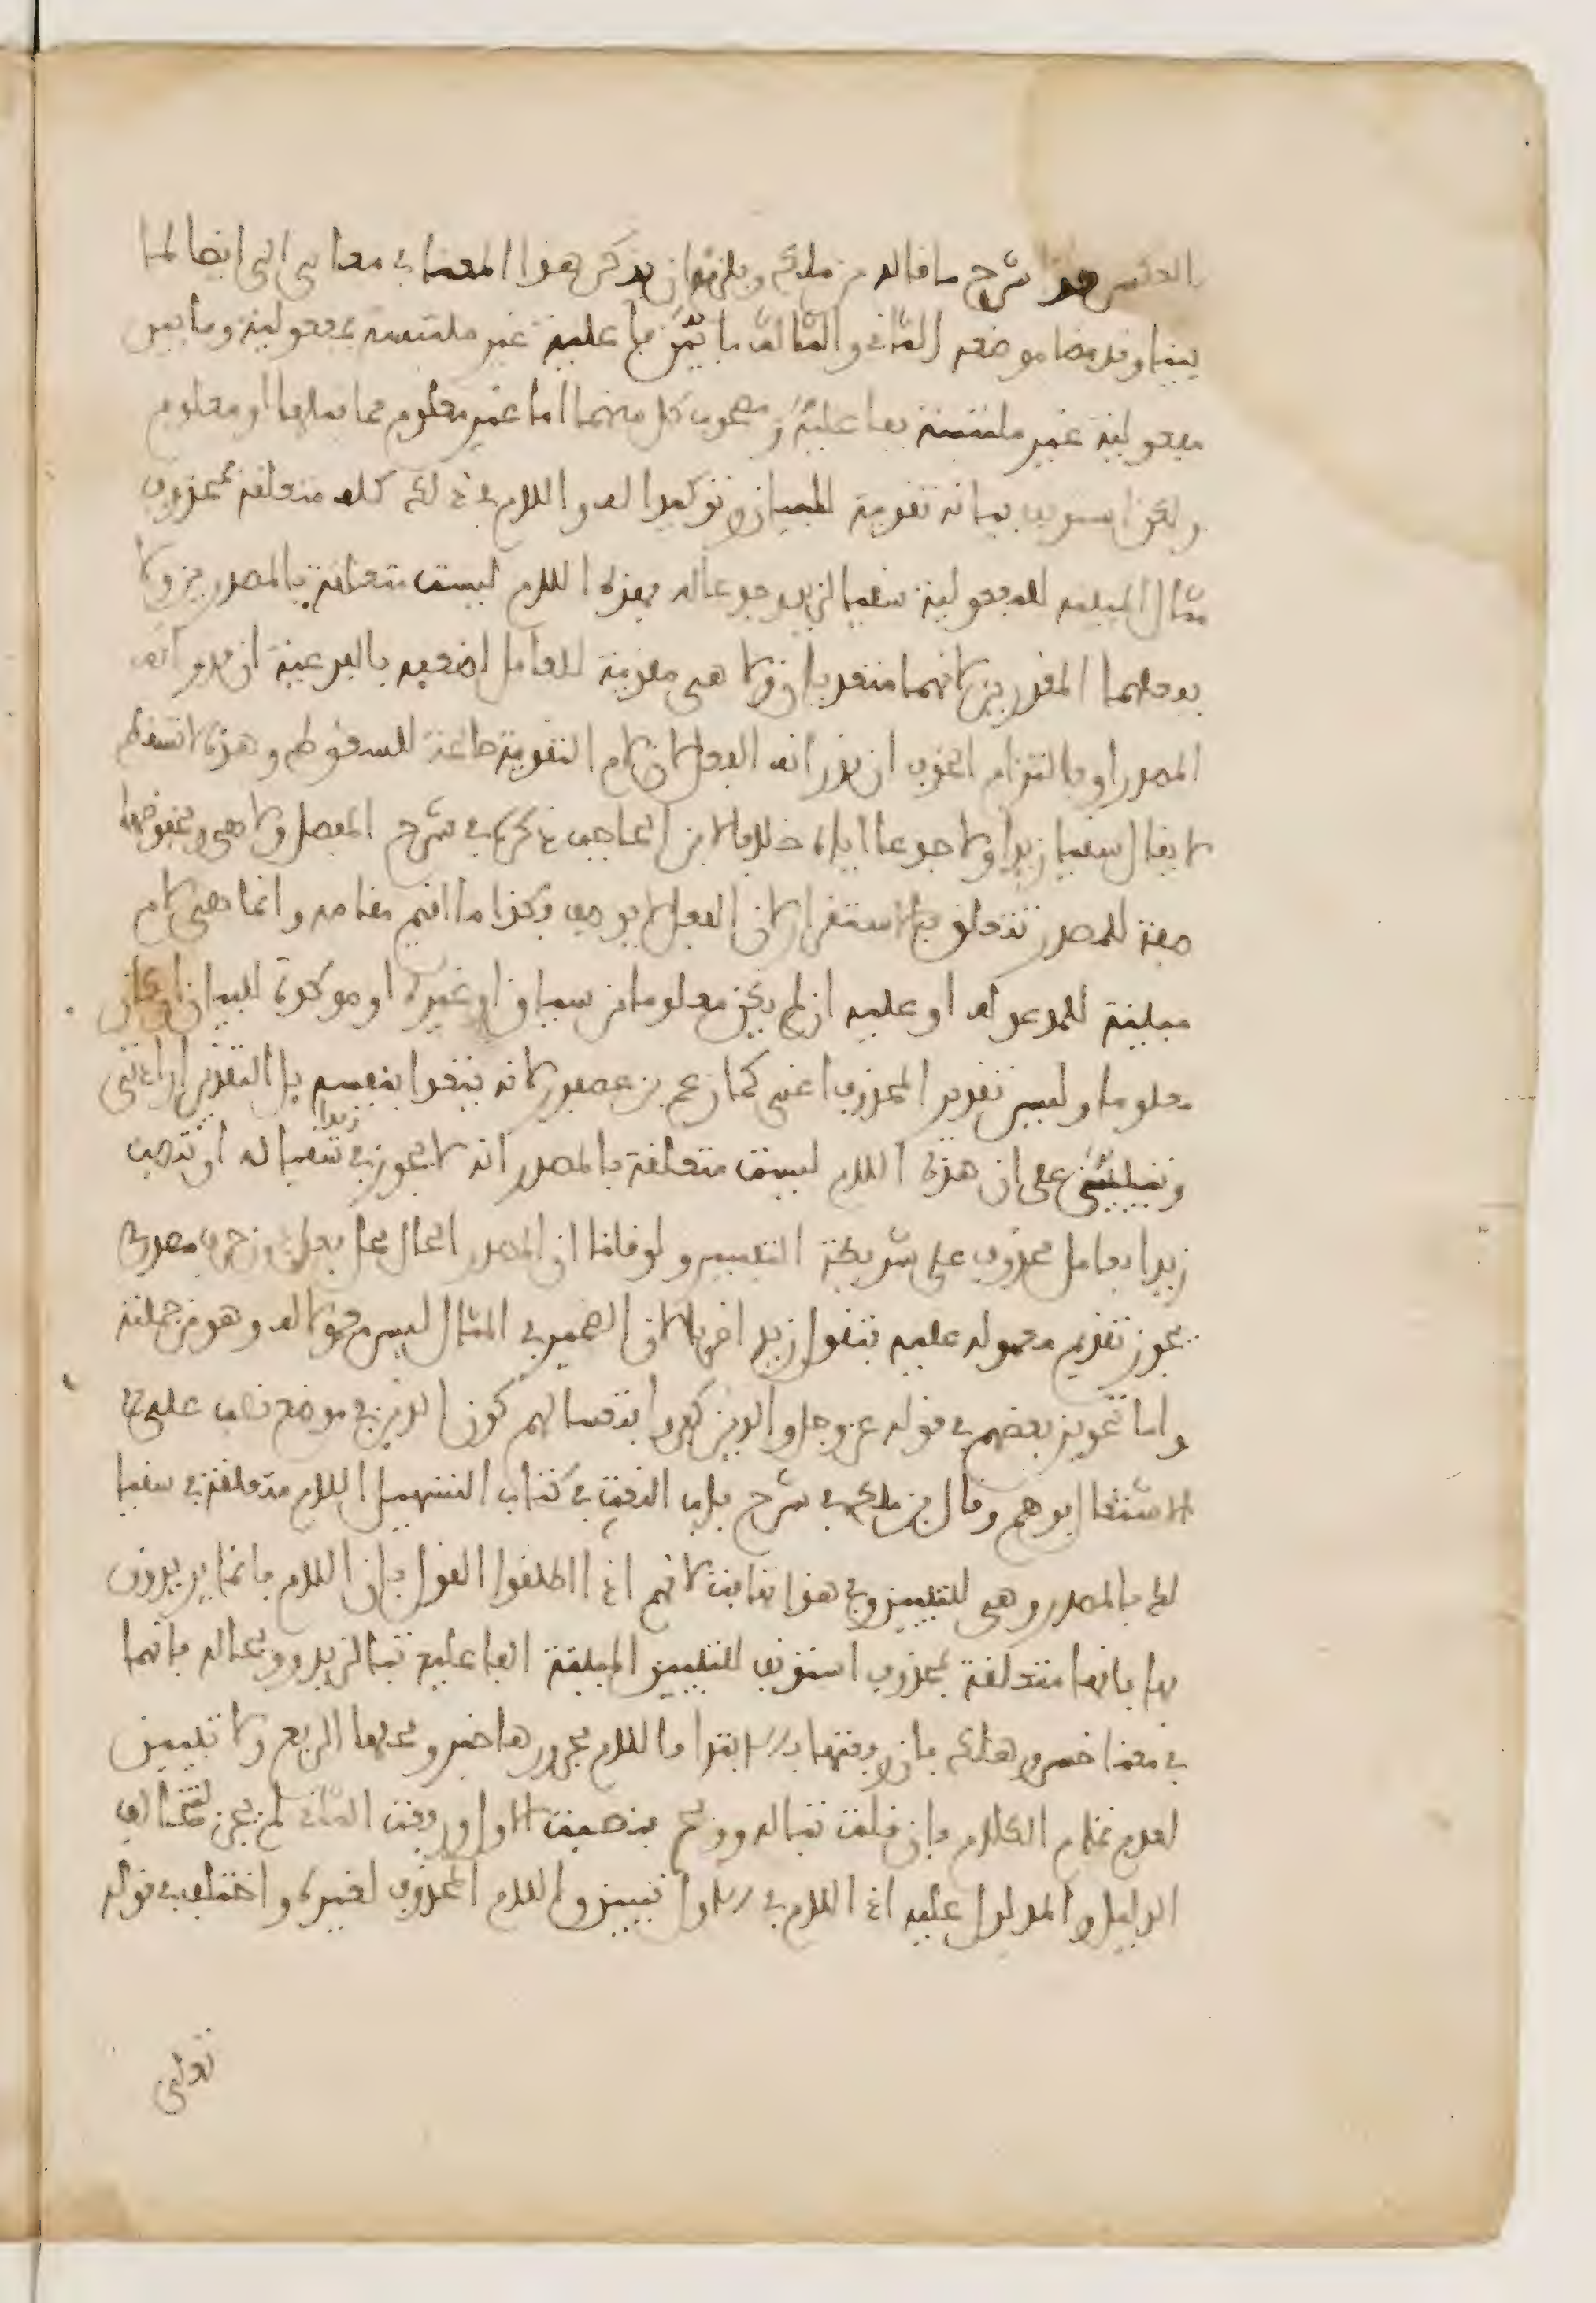 بالعكس هذا شرح ما قاله بن ملك ويلزمه ان يذكر هذا المعنا في معاني الى ايضا لما
بينا وقد مضا موضعه الثاني والثالث ما يبين فاعلية غير ملتبسة بمفعولية وما يبين
مفعولية غير ملتبسة بفاعلية ومصحوب كل منهما اما غير معلوم مما قبلها او معلوم
ولكن استونف بيانه تقوية للبيان وتوكيدا له واللام في ذلك كله متعلقة بمحذوف
مثال المبينة للمفعولية سقيا لزيد وجدعا له فهذه اللام ليست متعلقة بالمصدرين ولا
بفعلهما المقدرين لانهما متعديان ولا هي مقوية للعامل لضعفه بالفرعية ان قدر انه
المصدر او بالتزام الحذف ان قدر انه الفعل لان لام التقوية صالحة للسقوط وهذه لا تسقط
لا يقال سقيا زيدا ولا جدعا اياه خلافا لابن الحاجب ذكره في شرح المفصل ولا هي ومخفوضها
صفة للمصدر تتعلق بالاستقرار لان الفعل لا يوصف وكذا ما اقيم مقامه وانما هي لام
مبينة للمدعو له او عليه ان لم يكن معلوما من سياق او غيره او موكدة للبيان ان كان
معلوما وليس تقدير المحذوف اعني كما زعم بن عصفور لانه يتعدا بنفسه بل التقدير ارادتي
وينبني على ان هذه اللام ليست متعلقة بالمصدر انه لا يجوز في زيد سقيا له ان تنصب
زيدا بعامل محذوف على شريطة التفسير ولو قلنا ان المصدر الحال محل فعل دون حرف مصدري
يجوز تقديم معموله عليه فتقول زيدا ضربا لان الضمير في المثال ليس معمولا له وهو من جملته
واما تجويز بعضهم في قوله عز وجل والذين كفروا فتعسا لهم كون الذين في موضع نصب على
الاشتغال فوهم وقال بن ملك في شرح باب النعت في كتاب التسهيل اللام متعلقة في سقيا
لك بالمصدر وهي للتبيين وفي هذا تهافت لانهم اذا اطلقوا القول بان اللام فانما يريدون
بها بانها متعلقة بمحذوف استونف للتبيين المبينة الفاعلية تبا لزيد وويحا له فانهما
في معنا خسر وهلك فان رفعتهما بالابتدا فاللام مجرورها خبر ومحلهما الرفع ولا تبيين
لعدم تمام الكلام فان قلت تبا له وويح فنصبت الاول ورفعت الثاني لم يجز لتخالف
الدليل والمدلول عليه اذ اللام في الاول تبيين واللام المحذوف لغيره واختلف في قوله
تعلى